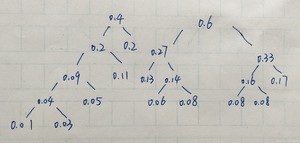 0.4 0.6
0.2 0.2 0.27 0.33
0.09 0.11 0.13 0.14 0.16 0.17
0.04 0.05 0.06 0.08 0.08 0.08
0.01 0.03